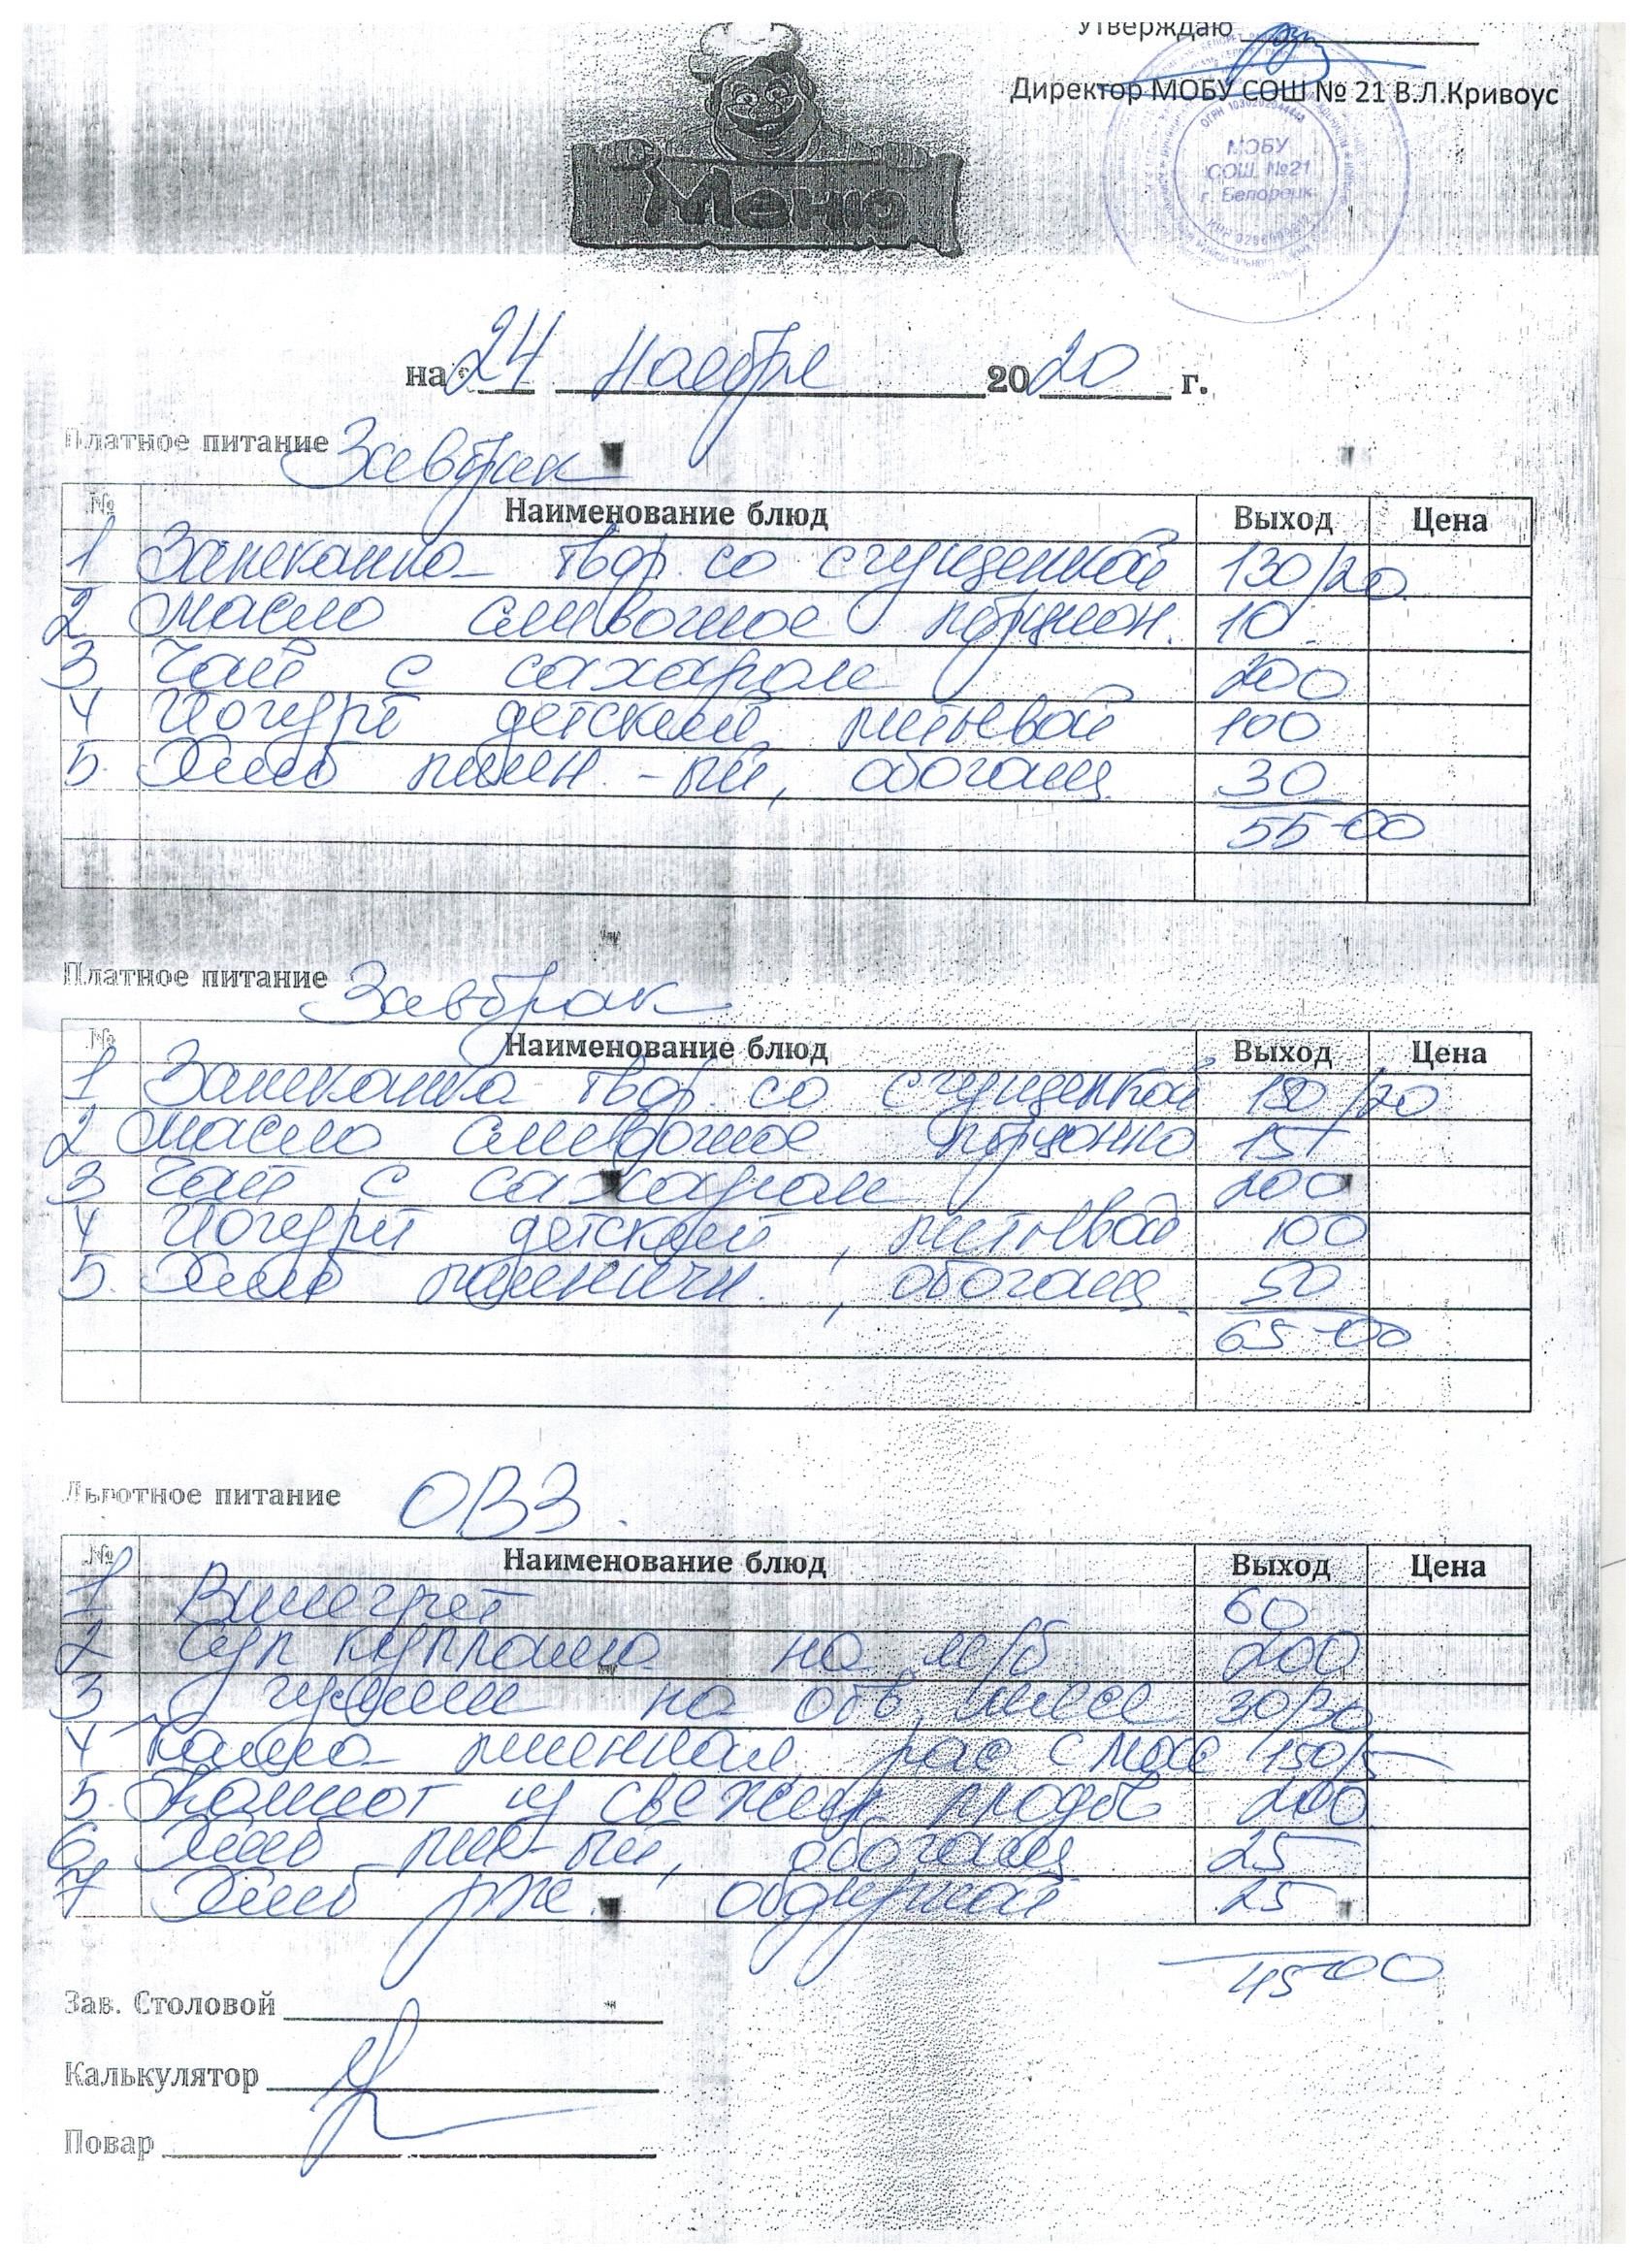 Утверждаю
Директор МОБУ СОШ № 21 В.Л.Кривоус
ОГРН 1030202044448
МОБУ
СОШ №21
г. Белорецк
Меню
на 24 Ноября 2020 г.
Платное питание Завтрак
№ Наименование блюд Выход Цена
1 Запеканка твор. со сгущенкой 130/20
2 Масло сливочное порцион. 10
3 Чай с сахаром 200
4 Йогурт детский, питьевой 100
5. Хлеб пшен-ый, обогащ. 30
55-00
Платное питание Завтрак
№ Наименование блюд Выход Цена
1 Запеканка твор. со сгущенкой /20
2 Масло сливочное порционно 15
3 Чай с сахаром 200
4 Йогурт детский, питьевой 100
5. Хлеб пшеничн., обогащ. 50
65-00
Льготное питание ОВЗ.
№ Наименование блюд Выход Цена
1 Винегрет 60
2 Суп на м/б 200
3 Гуляш из отв. мяса 30/30
4 Каша пшенная, рас с мас 150/5
5. Компот из свежих плодов 200
6 Хлеб пш-ый, обогащ 25
7 Хлеб рж. обдирной 25
45-00
Зав. Столовой
Калькулятор
Повар